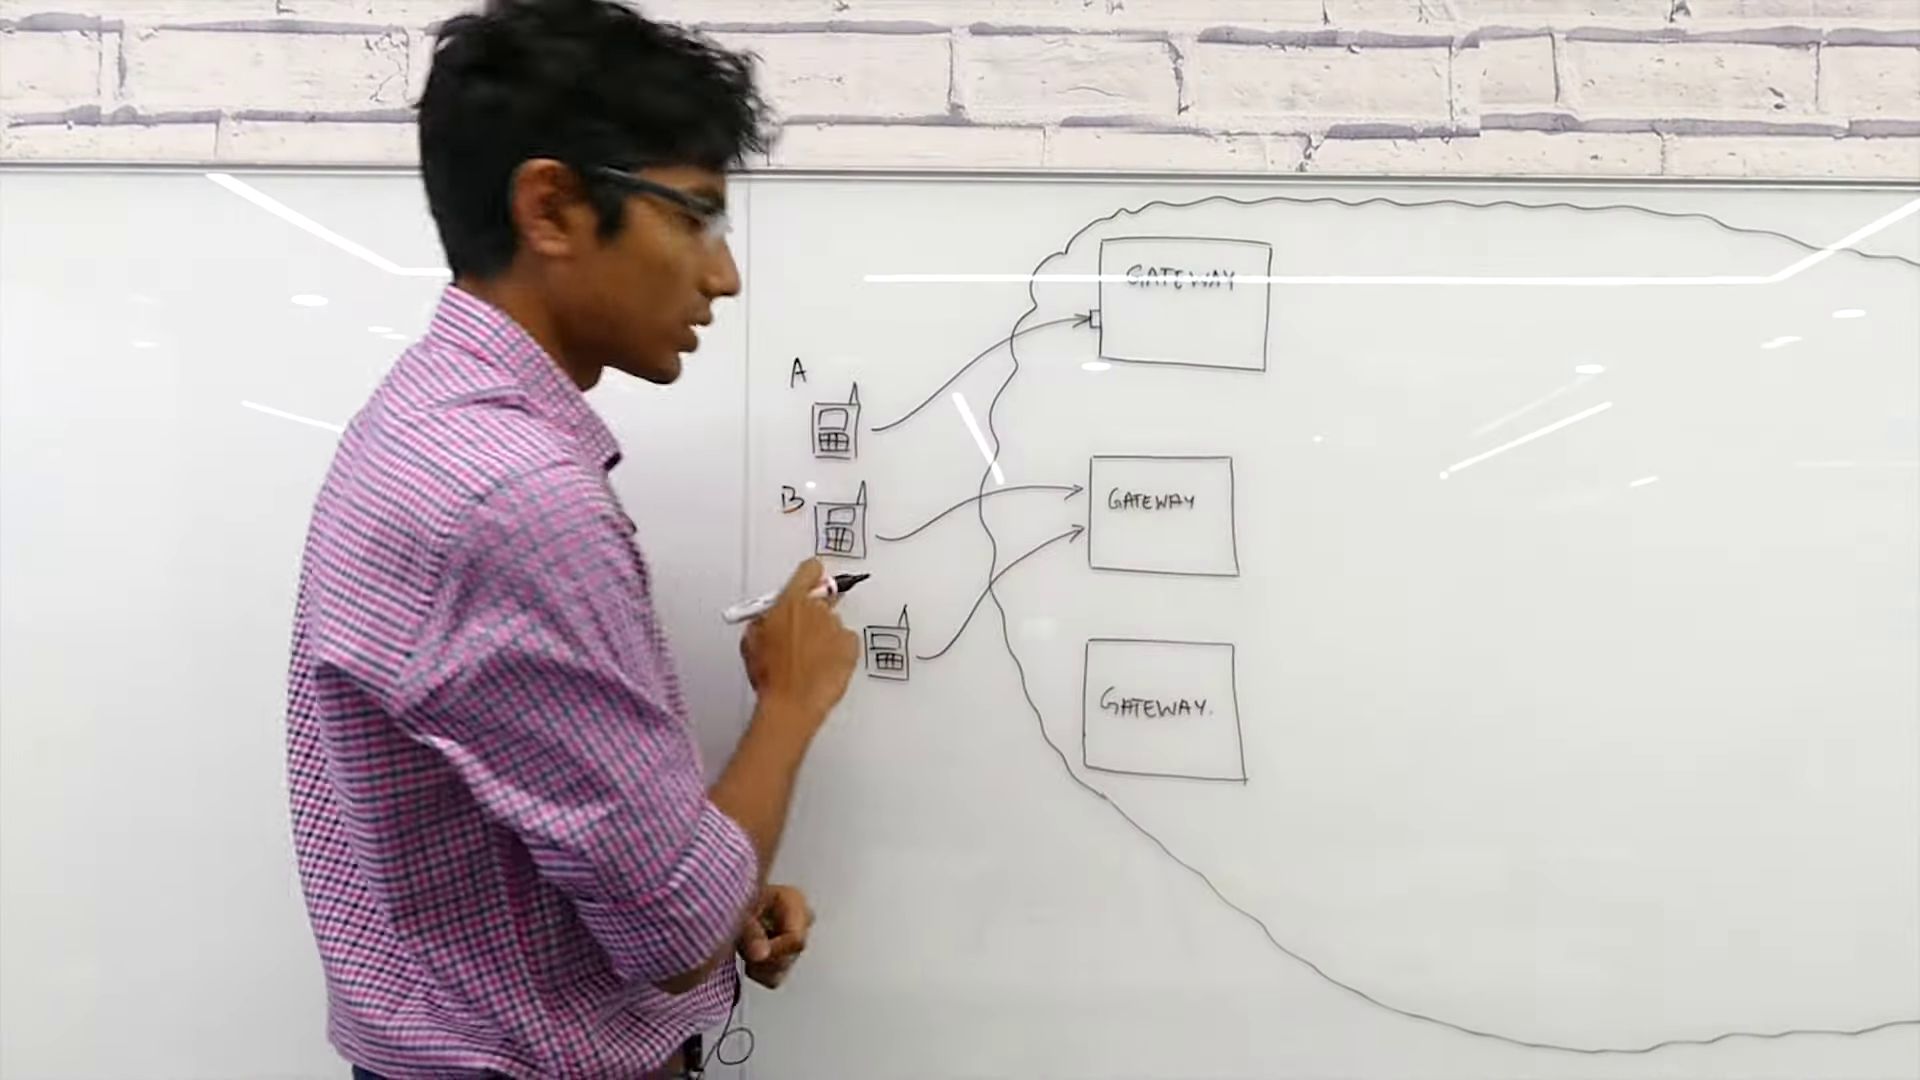 GATEWAY
A
B
GATEWAY
GATEWAY.